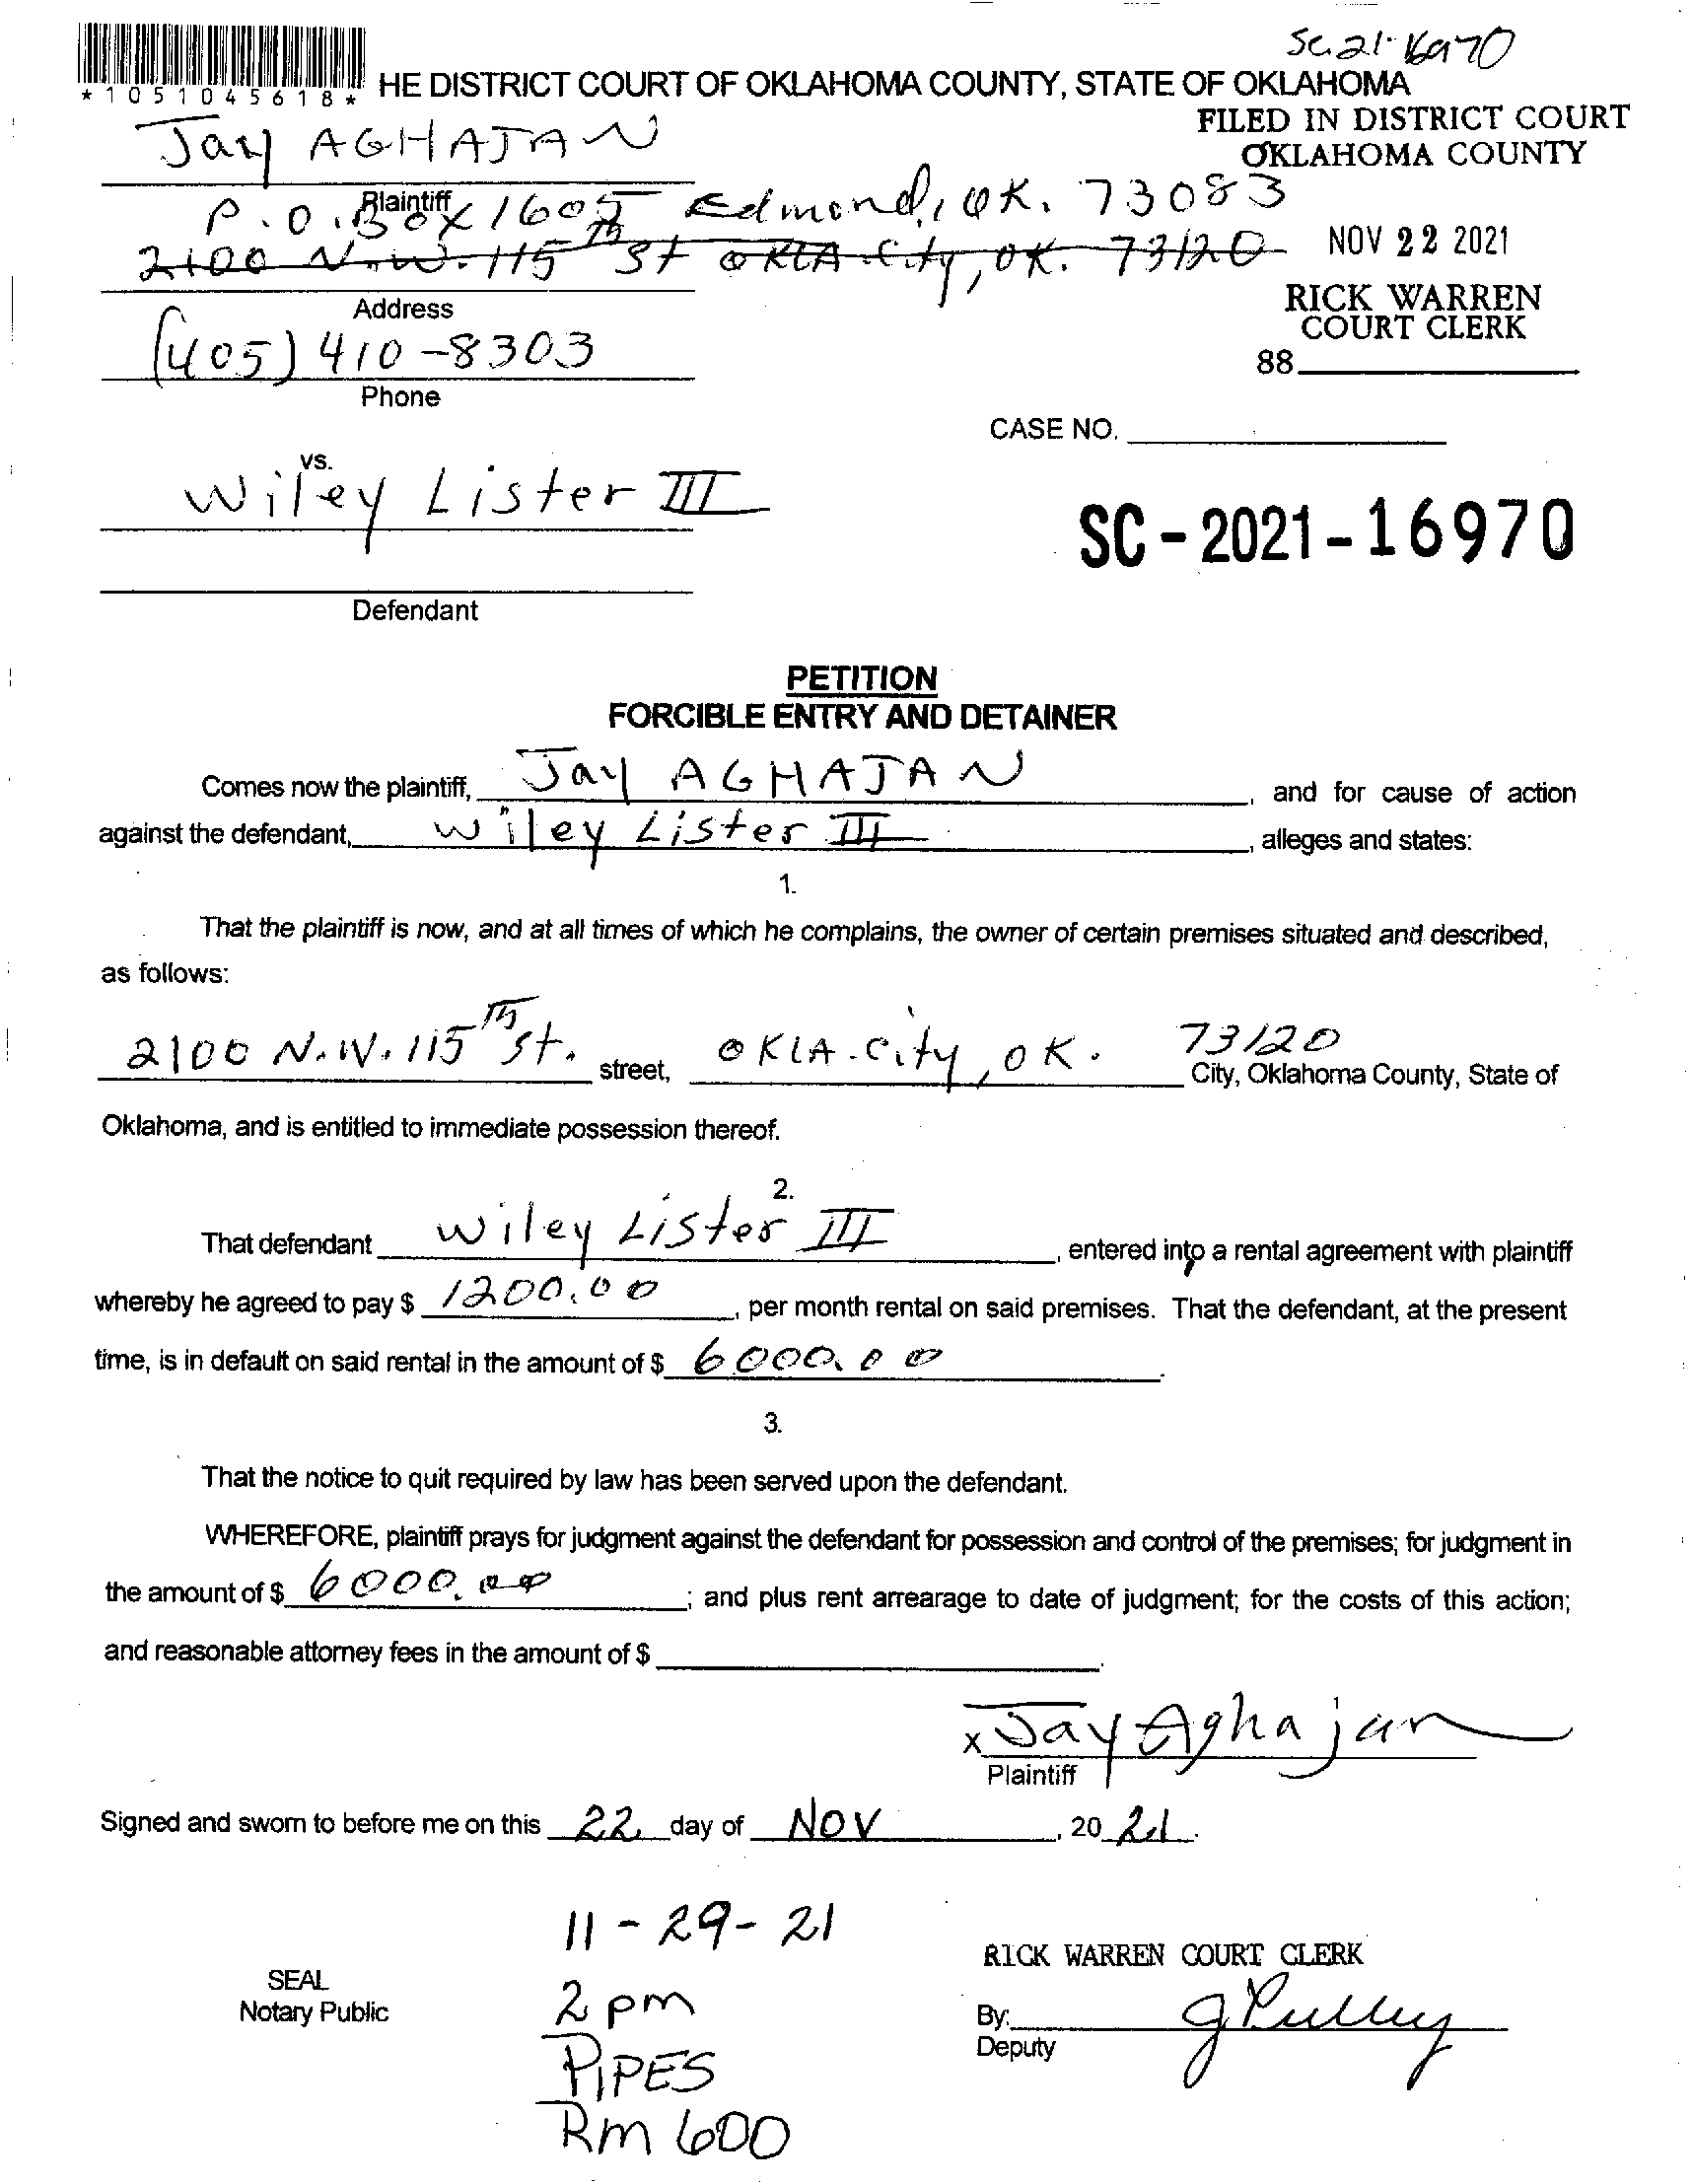 SC.21-16970
*1051045618*
HE DISTRICT COURT OF OKLAHOMA COUNTY, STATE OF OKLAHOMA
FILED IN DISTRICT COURT
OKLAHOMA COUNTY
Jay AGHAJAN
Plaintiff
P.O. Box 1605 Edmond, OK. 73083
2100 N.W. 115th St OKLA City, OK. 73120
NOV 22 2021
Address
RICK WARREN
COURT CLERK
(405) 410-8303
88
Phone
CASE NO.
vs.
Wiley Lister III
SC-2021-16970
Defendant
PETITION
FORCIBLE ENTRY AND DETAINER
Comes now the plaintiff, Jay AGHAJAN, and for cause of action
against the defendant, Wiley Lister III, alleges and states:
1.
That the plaintiff is now, and at all times of which he complains, the owner of certain premises situated and described,
as follows:
2100 N.W. 115th St. street, OKLA. City, OK. 73120 City, Oklahoma County, State of
Oklahoma, and is entitled to immediate possession thereof.
2.
That defendant Wiley Lister III, entered into a rental agreement with plaintiff
whereby he agreed to pay $ 1200.00, per month rental on said premises. That the defendant, at the present
time, is in default on said rental in the amount of $ 6000.00.
3.
That the notice to quit required by law has been served upon the defendant.
WHEREFORE, plaintiff prays for judgment against the defendant for possession and control of the premises; for judgment in
the amount of $ 6000.00; and plus rent arrearage to date of judgment; for the costs of this action;
and reasonable attorney fees in the amount of $ .
x Jay Aghajan
Plaintiff
Signed and sworn to before me on this 22 day of NOV, 20 21.
11-29-21
RICK WARREN COURT CLERK
SEAL
Notary Public
2 pm
By: g Pulley
Deputy
PIPES
Rm 600